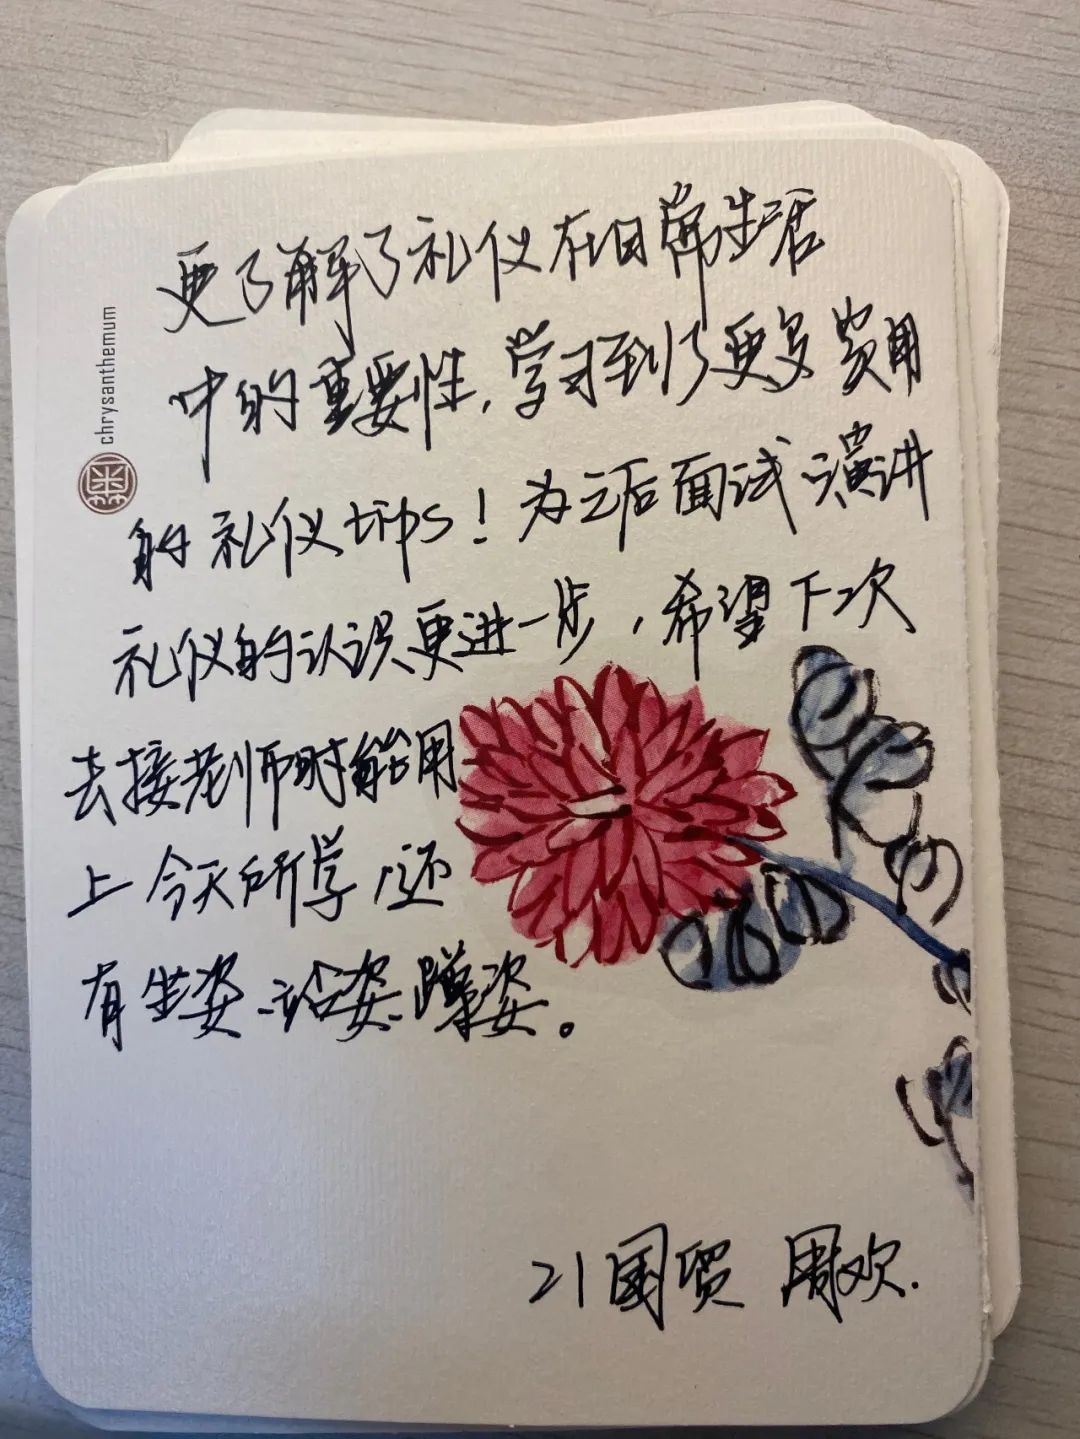 chrysanthemum
更了解了礼仪在日常生活
中的重要性，学习到了更多实用
的礼仪tips！为之后面试演讲
礼仪的认识更进一步，希望下次
去接老师时能用
上今天所学，还
有坐姿、站姿、蹲姿。
21国贸 周欢.